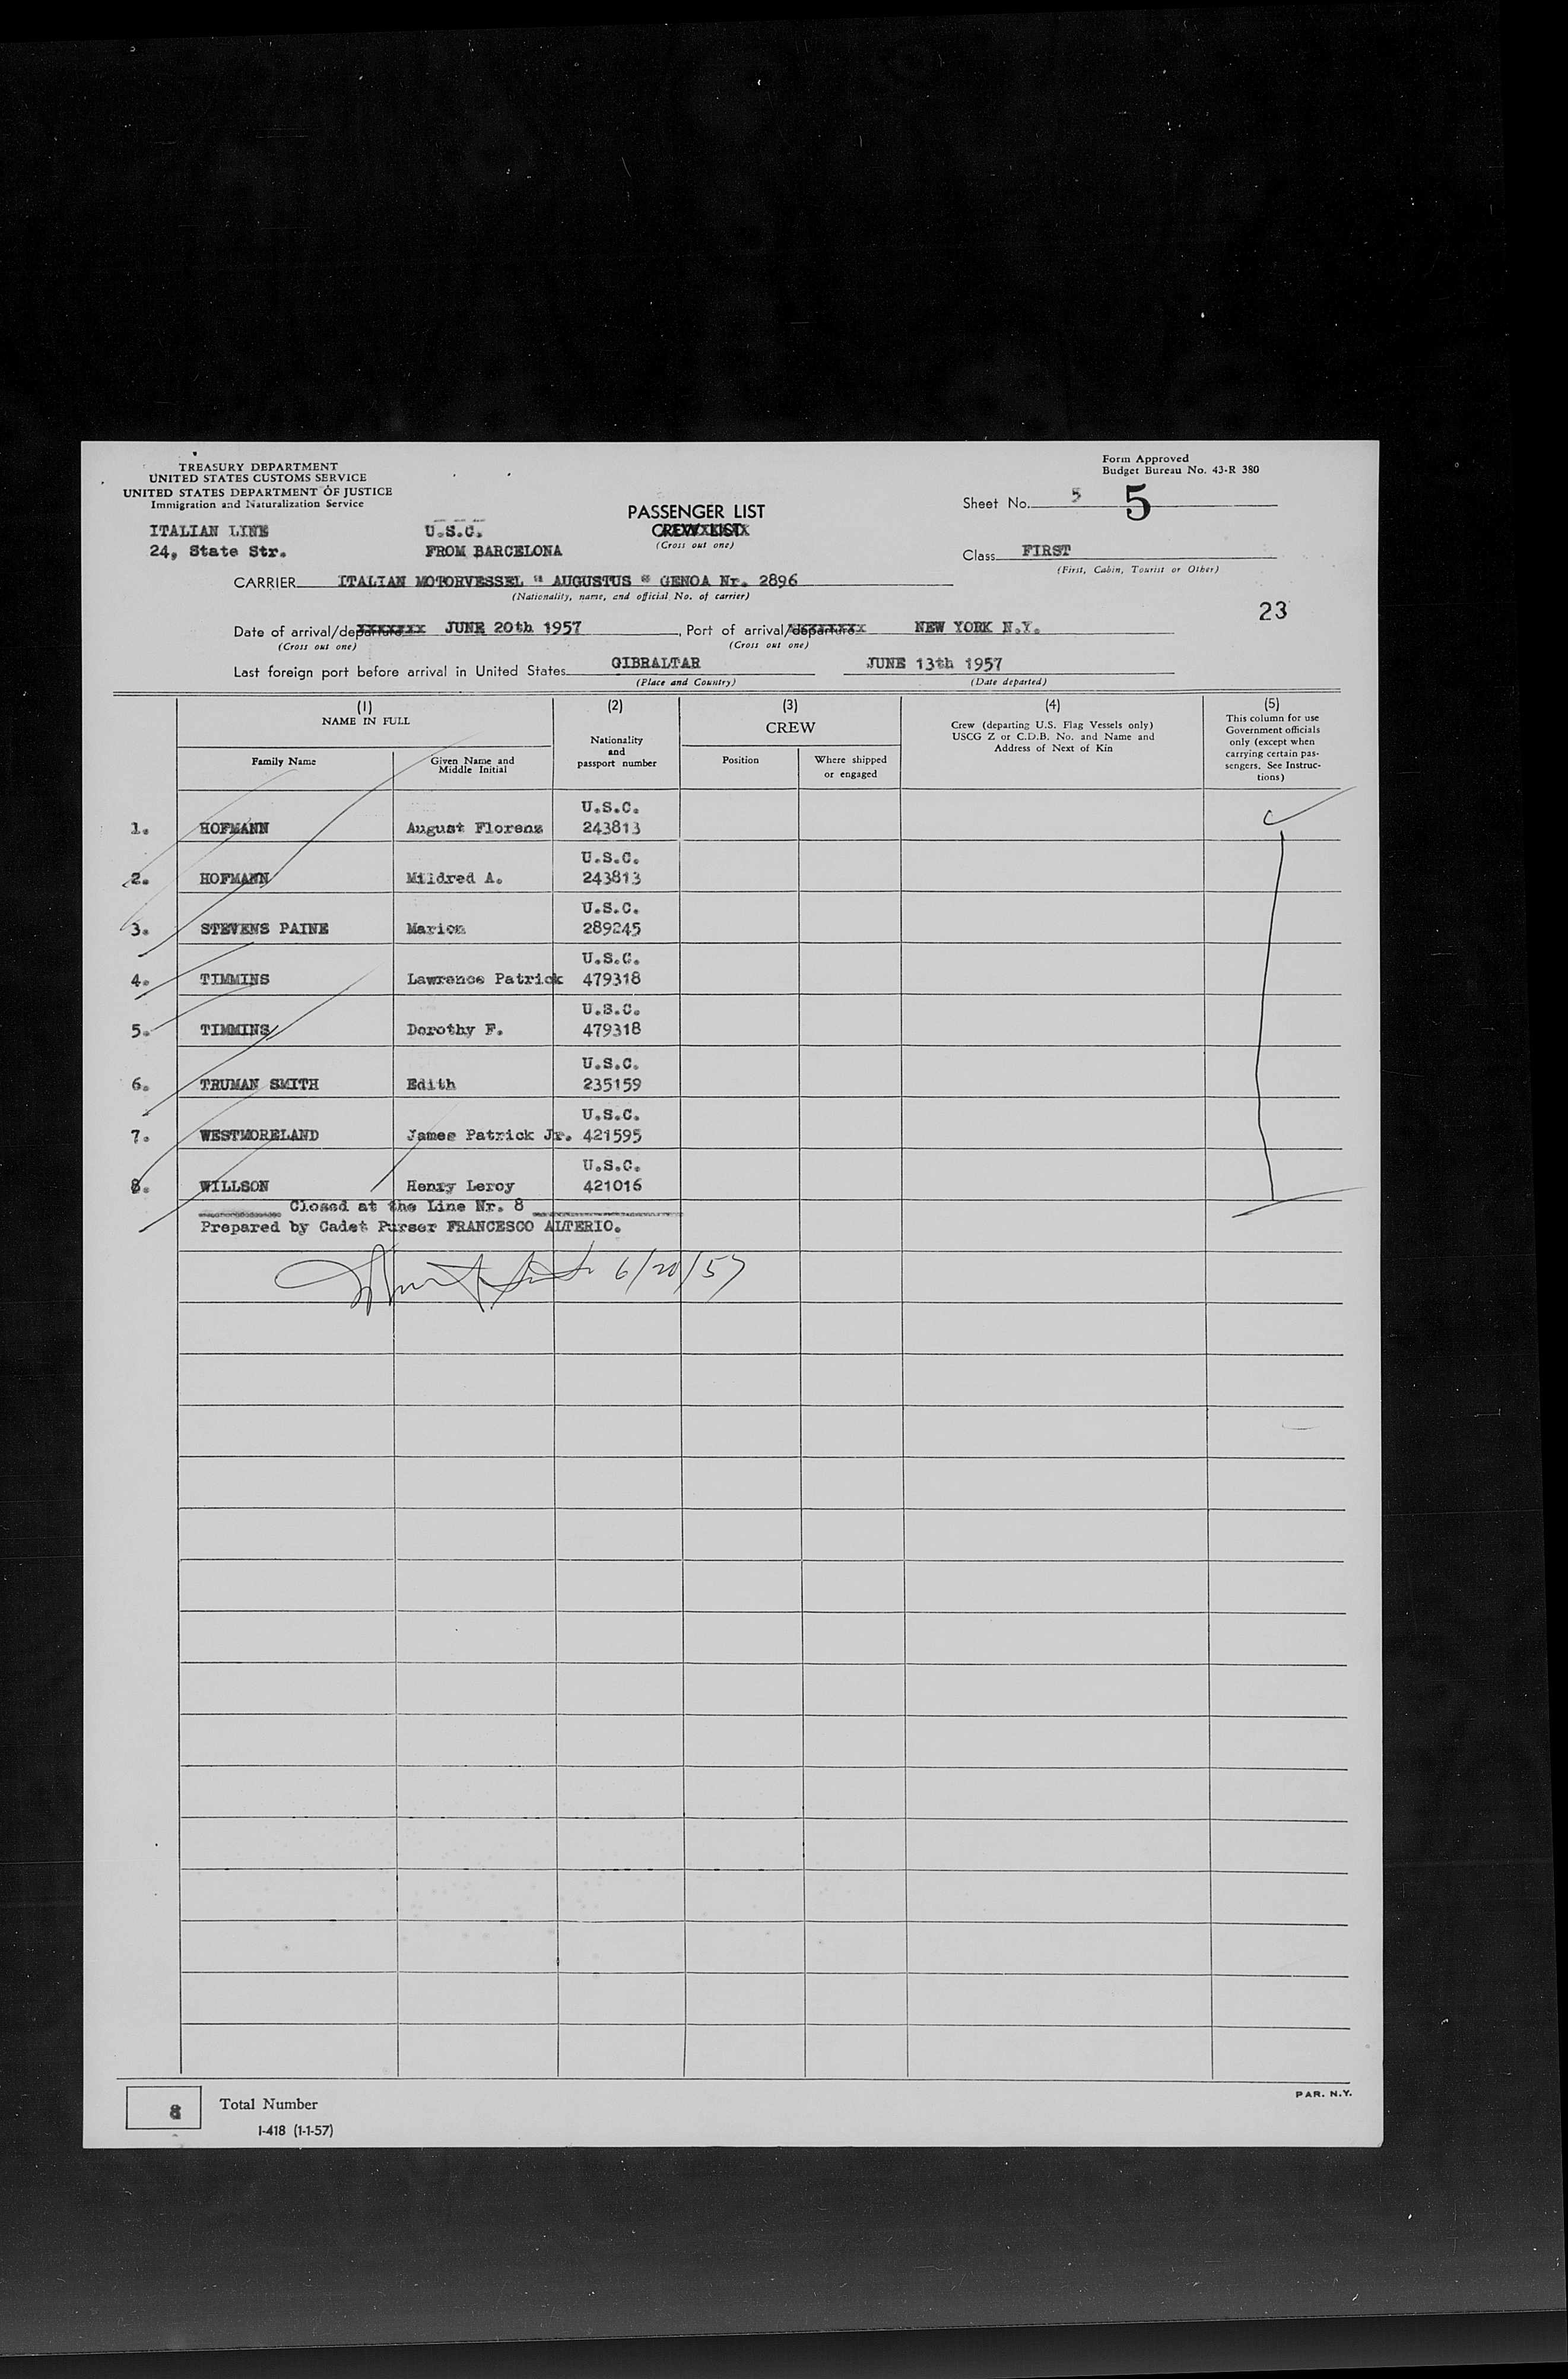 TREASURY DEPARTMENT
UNITED STATES CUSTOMS SERVICE
UNITED STATES DEPARTMENT OF JUSTICE
Immigration and Naturalization Service
Form Approved
Budget Bureau No. 43-R 380
Sheet No. 5 5
PASSENGER LIST
CREW LIST
(Cross out one)
ITALIAN LINE
24, State Str.
U.S.C.
FROM BARCELONA
Class FIRST
(First, Cabin, Tourist or Other)
CARRIER ITALIAN MOTORVESSEL " AUGUSTUS " GENOA Nr. 2896
(Nationality, name, and official No. of carrier)
23
Date of arrival/departure JUNE 20th 1957, Port of arrival/departure NEW YORK N.Y.
(Cross out one) (Cross out one)
Last foreign port before arrival in United States GIBRALTAR JUNE 13th 1957
(Place and Country) (Date departed)
(1)
NAME IN FULL
Family Name
Given Name and
Middle Initial
(2)
Nationality
and
passport number
(3)
CREW
Position
Where shipped
or engaged
(4)
Crew (departing U.S. Flag Vessels only)
USCG Z or C.D.B. No. and Name and
Address of Next of Kin
(5)
This column for use
Government officials
only (except when
carrying certain pas-
sengers. See Instruc-
tions)
U.S.C.
1. HOFMANN August Florenz 243813
U.S.C.
2. HOFMANN Mildred A. 243813
U.S.C.
3. STEVENS PAINE Marion 289245
U.S.C.
4. TIMMINS Lawrence Patrick 479318
U.S.C.
5. TIMMINS Dorothy F. 479318
U.S.C.
6. TRUMAN SMITH Edith 235159
U.S.C.
7. WESTMORELAND James Patrick Jr. 421595
U.S.C.
8. WILLSON Henry Leroy 421016
Closed at the Line Nr. 8
Prepared by Cadet Purser FRANCESCO ALTERIO.
6/20/57
8 Total Number
I-418 (1-1-57)
PAR. N.Y.